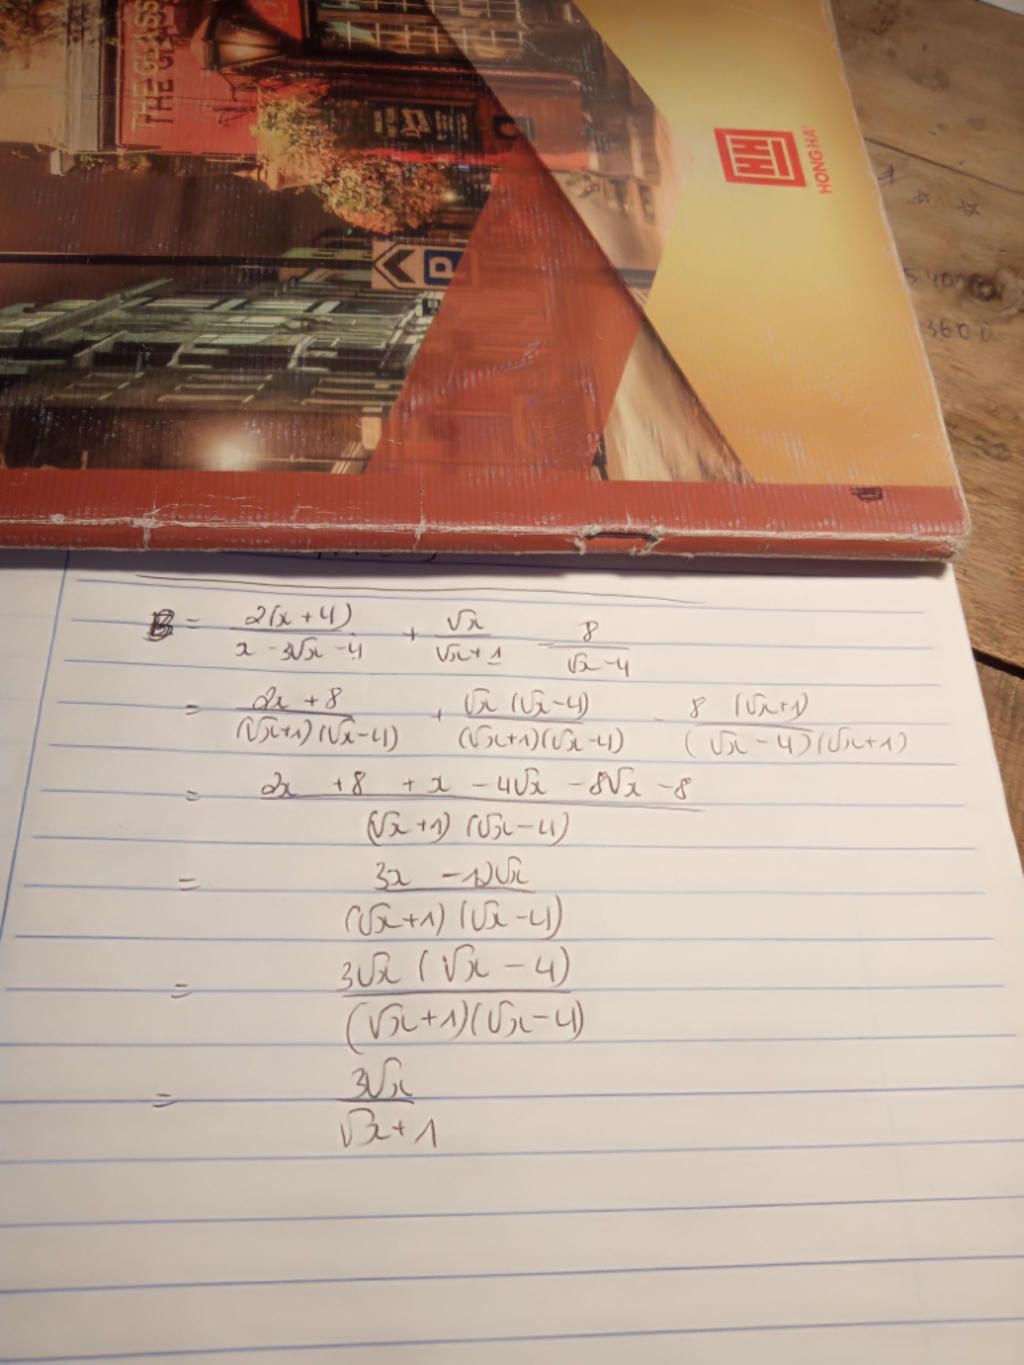 THE GLASS
THE GLASS
P
HH
HONG HA
3600
B = 2(x + 4) / (x - 3√x - 4) + √x / (√x + 1) - 8 / (√x - 4)
= (2x + 8) / ((√x+1)(√x-4)) + √x(√x-4) / ((√x+1)(√x-4)) - 8(√x+1) / ((√x-4)(√x+1))
= (2x + 8 + x - 4√x - 8√x - 8) / ((√x+1)(√x-4))
= (3x - 12√x) / ((√x+1)(√x-4))
= 3√x(√x - 4) / ((√x+1)(√x-4))
= 3√x / (√x + 1)